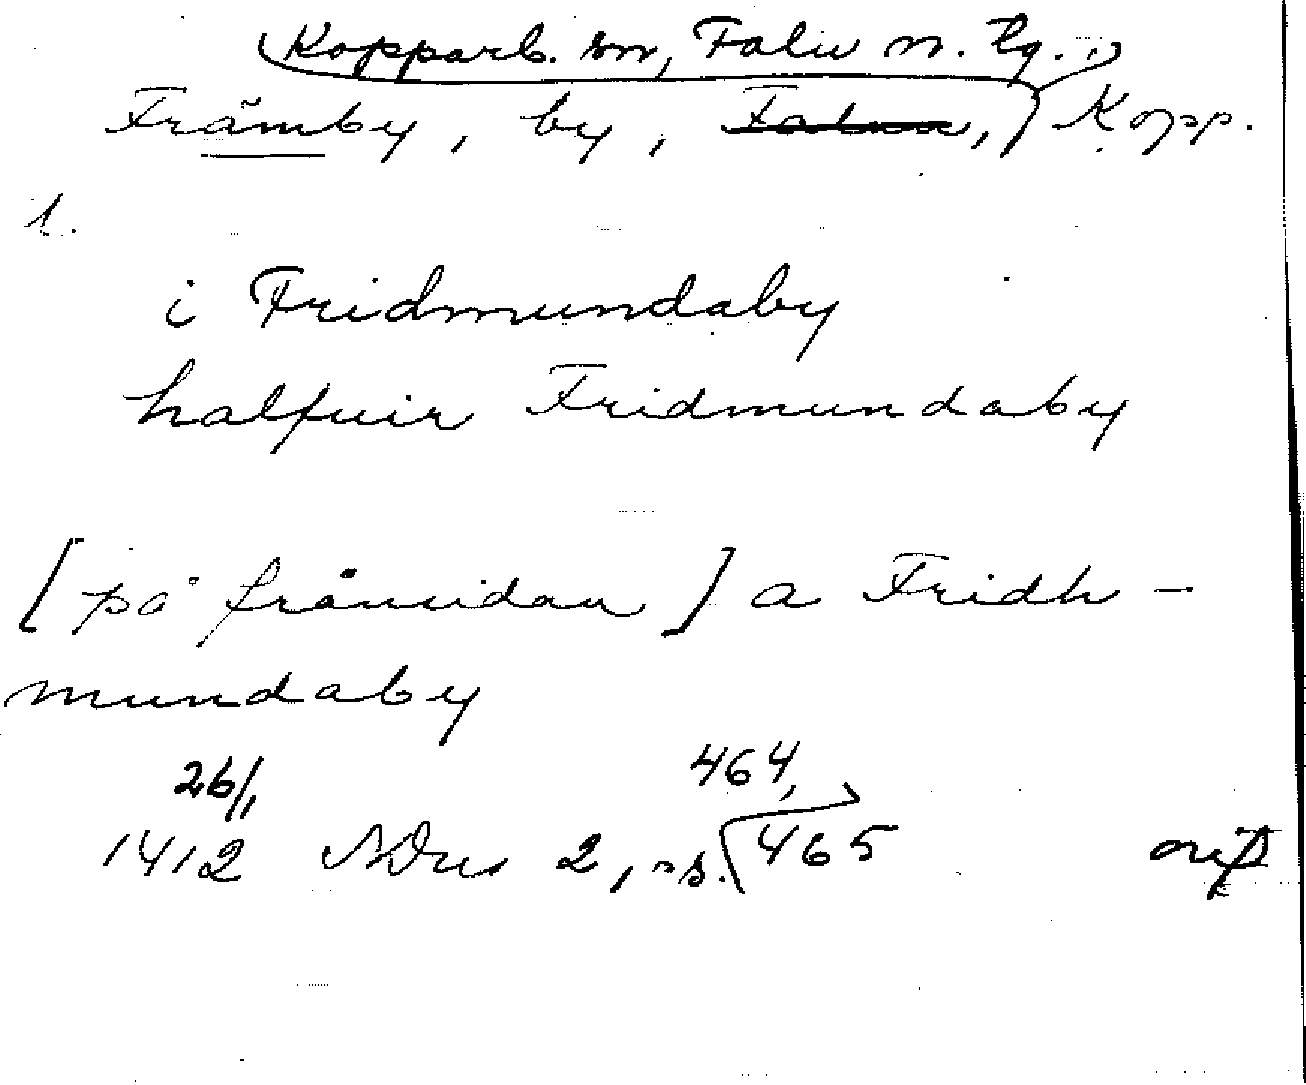 Kopparb. sn, Falu n. tg.,
Främby, by, Falun, Kopp.
1.
i Fridmundaby
halfuir Fridmundaby
[på frånsidan] a Fridh-
mundaby
26/1 464,
1412 NDus 2, ns. 465